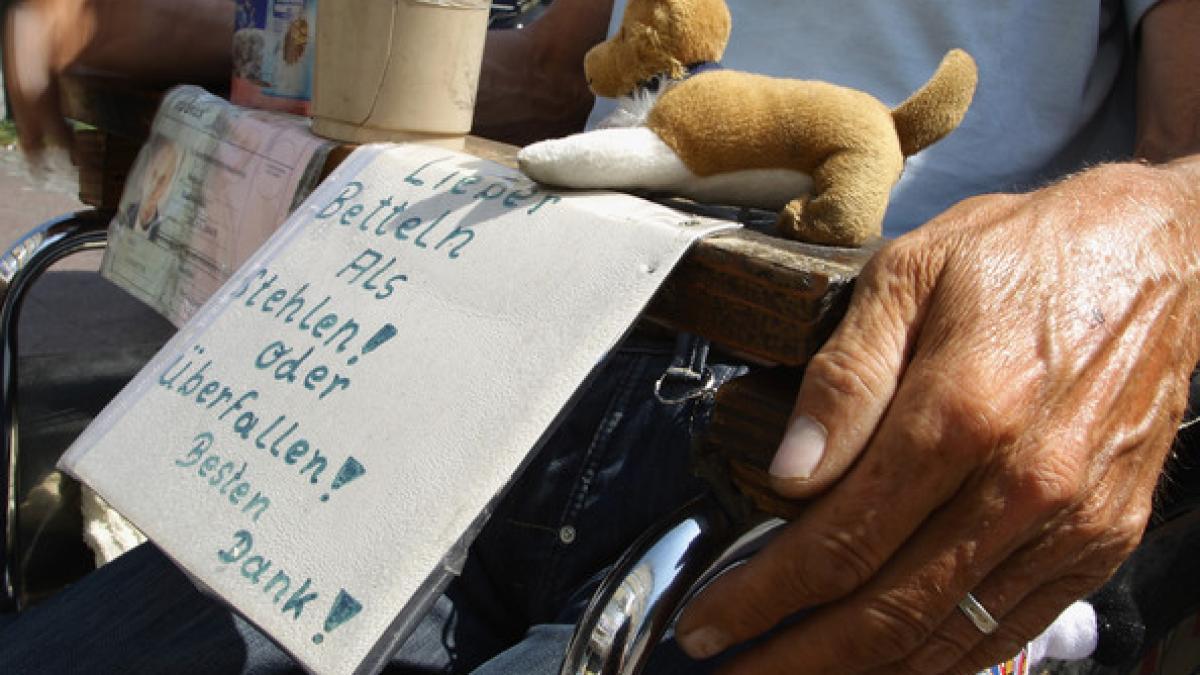 Lieber
Betteln
Als
Stehlen!
oder
Überfallen!
Besten
Dank!